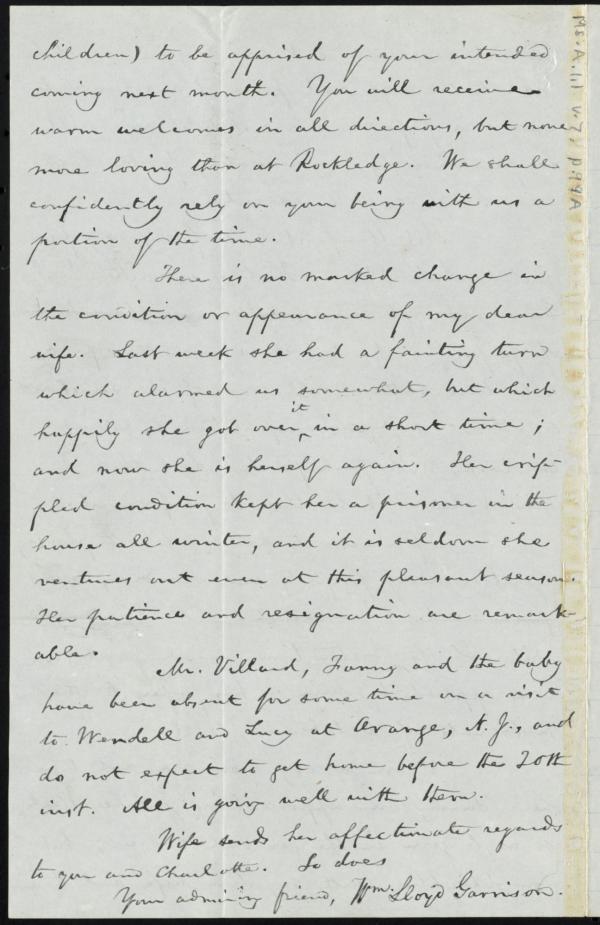 children) to be apprised of your intended
coming next month. You will receive
warm welcomes in all directions, but none
more loving than at Rockledge. We shall
confidently rely on your being with us a
portion of the time.
There is no marked change in
the condition or appearance of my dear
wife. Last week she had a fainting turn
which alarmed us somewhat, but which
happily she got over it in a short time;
and now she is herself again. Her crip-
pled condition kept her a prisoner in the
house all winter, and it is seldom she
ventures out even at this pleasant season.
Her patience and resignation are remark-
able.
Mr. Villard, Fanny and the baby
have been absent for some time on a visit
to Wendell and Lucy at Orange, N. J., and
do not expect to get home before the 20th
inst. All is going well with them.
Wife sends her affectionate regards
to you and Charlotte. So does
Your admiring friend, Wm. Lloyd Garrison.
Ms. A. 1.1 v. 7, p. 99A